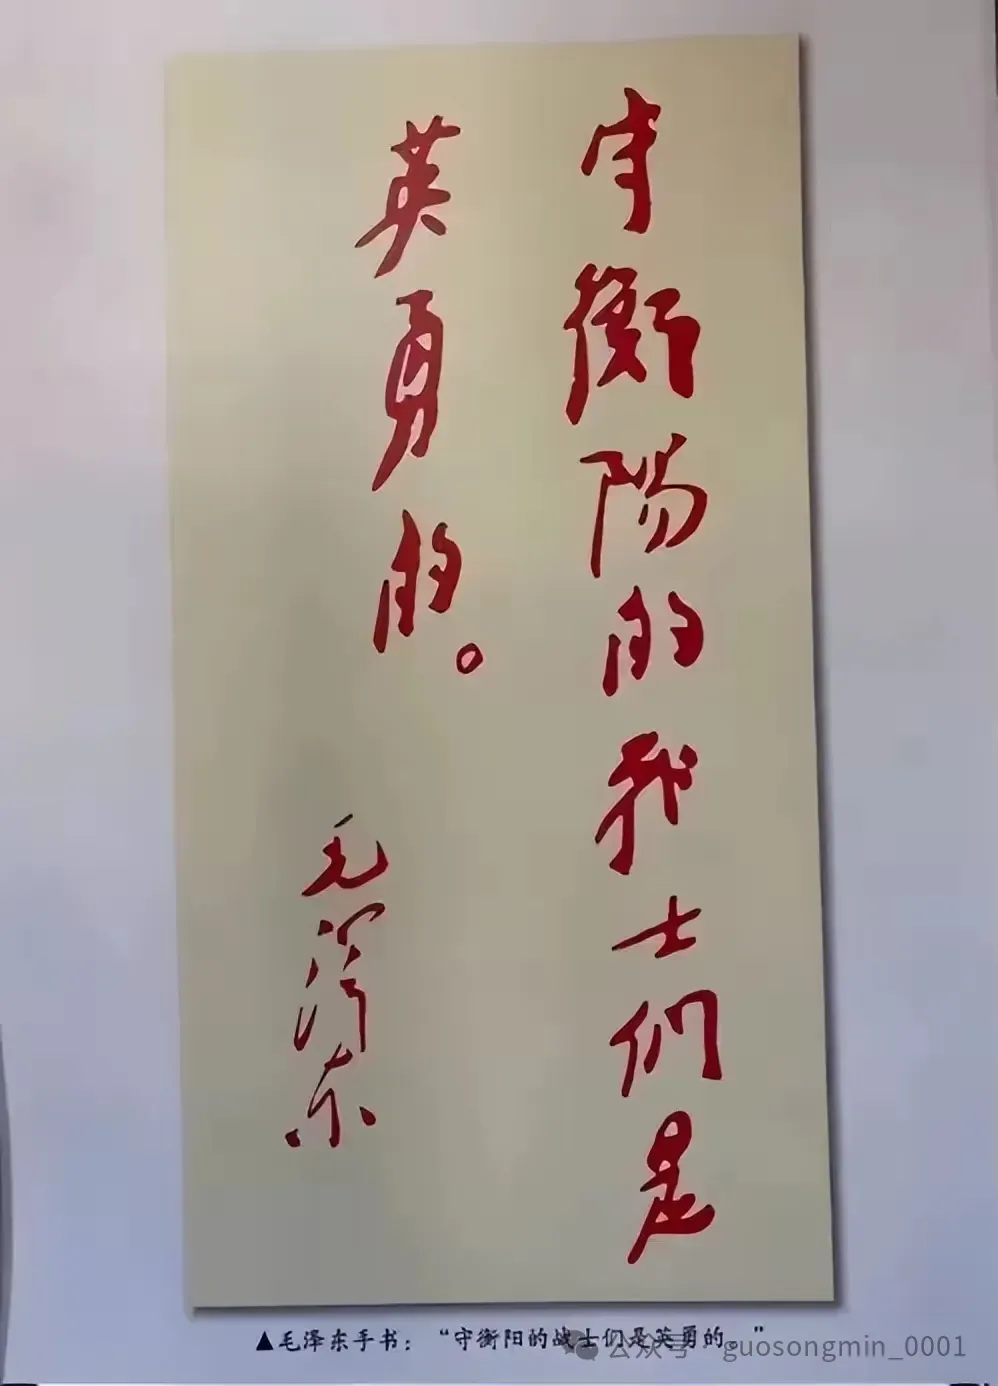 守衡陽的战士们是
英勇的。
毛泽东
▲毛泽东手书：“守衡阳的战士们是英勇的。”
公众号 guosongmin_0001